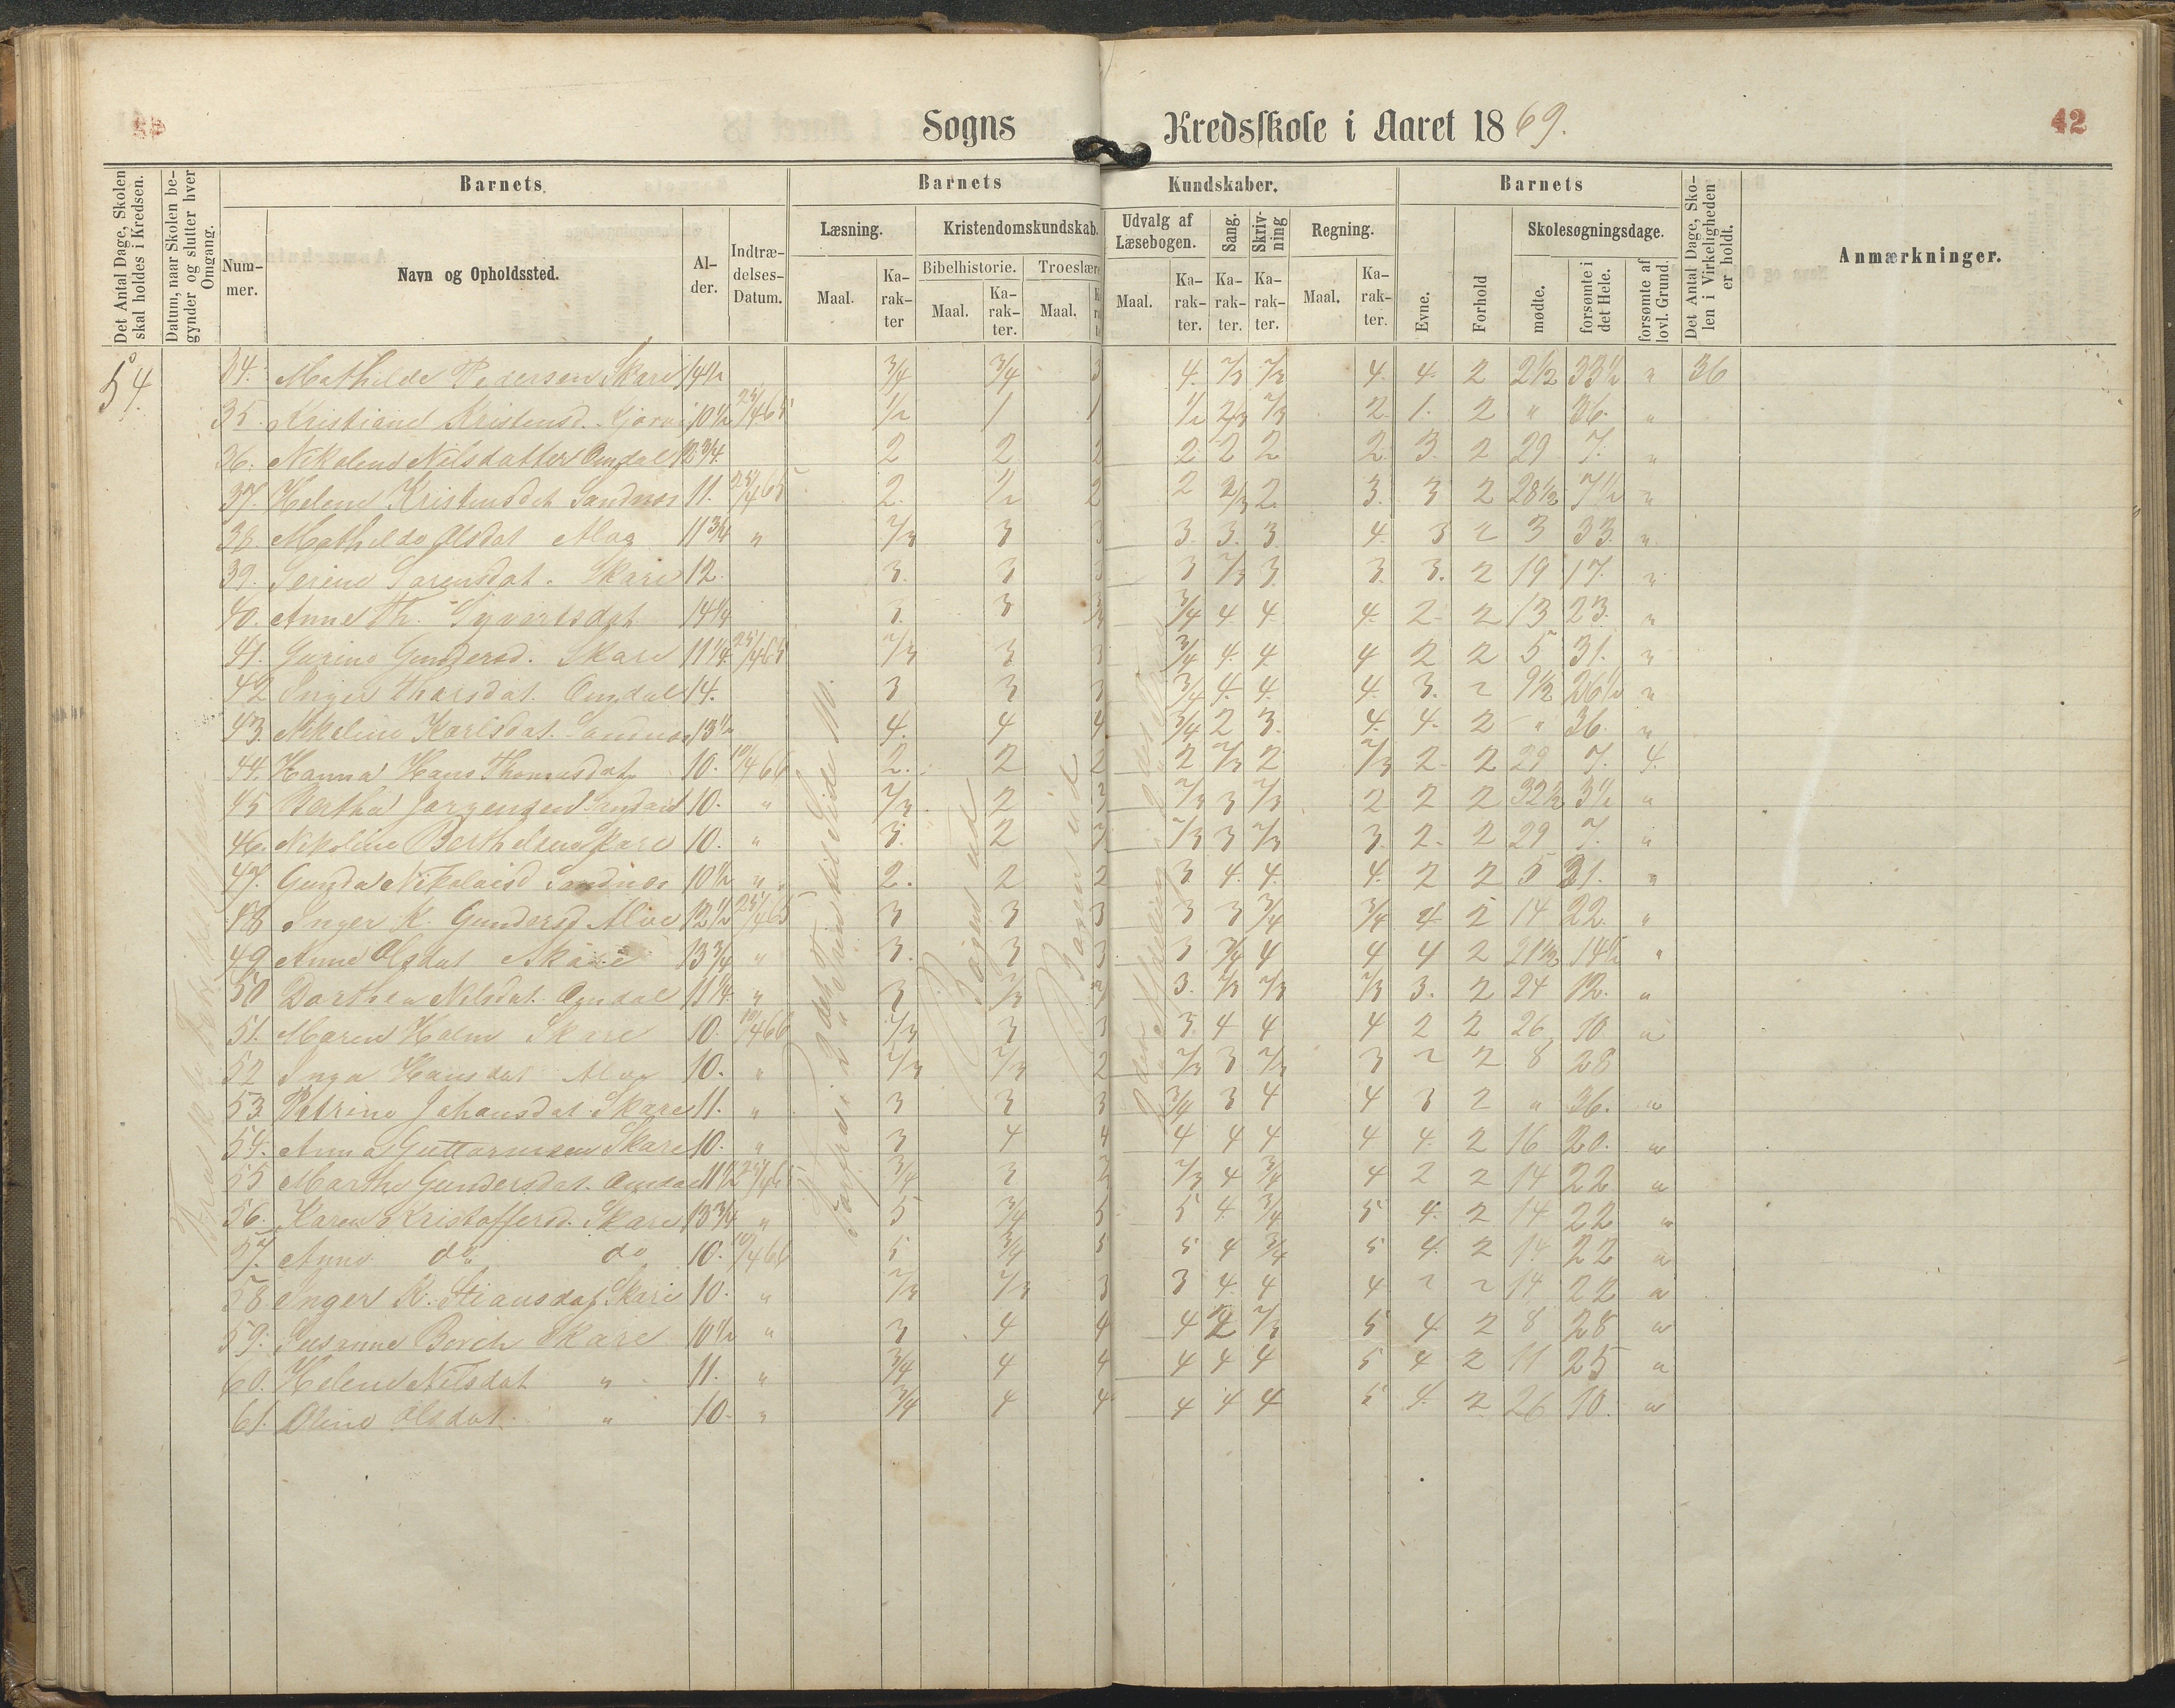 Sogns Kredsskole i Aaret 1869.
42
Det Antal Dage, Skolen skal holdes i Kredsen.
Datum, naar Skolen begynder og slutter hver Omgang.
Barnets
Nummer.
Navn og Opholdssted.
Alder.
Indtrædelses-Datum.
Barnets Kundskaber.
Læsning.
Kristendomskundskab.
Bibelhistorie.
Troeslære
Maal.
Karakter
Maal.
Karakter.
Maal.
Udvalg af Læsebogen.
Sang.
Skrivning
Regning.
Maal.
Karakter.
Karakter.
Karakter.
Maal.
Karakter.
Barnets
Evne.
Forhold
Skolesøgningsdage.
mødte.
forsømte i det Hele.
forsømte af lovl. Grund.
Det Antal Dage, Skolen i Virkeligheden er holdt.
Anmærkninger.
54
34. Mathilde Pedersen Skare 14½ 3/4 3/4 3 4. 2/3 2/3 4. 4. 2 2½ 33½ " 36
35. Kristiane Kristensd. 10½ 25/4 65 1/2 1 1 1/2 2/3 2/3 2. 1. 2 " 36. "
36. Nikoline Nilsdatter Omdal 12¾ 2 2 2 2 2 2 2. 3. 2 29 7. "
37. Helene Kristensdat Sandnes 11. 25/4 65 2. 1/2 2 2 2/3 2. 3. 3 2 28½ 7½ "
38. Mathilde Olsdat Alve 11¾ " 2/3 3 3 3. 3. 3. 4. 3 2 3 33. "
39. Serine Sørensdat. Skare 12. 3. 3 3 3 2/3 3. 3. 3. 2 19 17. "
40. Anne Th. Syvertsdat 14¼ 3. 3 3/4 3/4 4. 4. 4. 2. 2 13 23. "
41. Gurine Gundersd. Skare 11¼ 25/4 65 2/3 3 3 3/4 4. 4. 4 2 2 5 31. "
42 Inger Tharsdat. Omdal 14. 3 3 3 3/4 4. 4. 4. 3. 2 9½ 26½ "
43. Nikoline Karlsdat. Sandnes 13½ 4. 4 4 3/4 2 3. 4. 4. 2 " 36. "
44. Hanna Hans Thomasdat 10. 10/4 66 2. 2 2 2. 2/3 2 2/3 2. 2 29 7. 4.
45 Bertha Jørgensen 10. " 2/3 2 2/3 3 2/3 2 2 2 32½ 3½ "
46. Nikoline Berthelsen Skare 10. " 3. 2 2/3 3 2/3 3. 2. 2 29 7. "
47. Gunda Nikolaisd Sandnes 10½ " 2. 2 2 3 4. 4. 4. 2 2 5 31. "
48 Inger K. Gundersd. Alve 12½ 25/4 65 3 3 3 3 3 3/4 3/4 4 2 14 22. "
49 Anne Olsdat Skare 13¾ " 3. 3 3 3 3/4 4 4 4 2 21½ 14½ "
50 Dorthea Nilsdat. Omdal 11¼ " 3 2/3 3. 2/3 2/3 2/3 3. 2 24 12. "
51. Maren Holm Skare 10. 10/4 66 2/3 3 3 3. 4 4 4 2 2 26 10 "
52 Inga Hansdat Alve 10. " 2/3 2/3 2 2/3 3 2/3 3 2 2 8 28
53. Petrine Johansdat. Skare 11. " 3 3 3 3/4 3 4 4 3 2 " 36. "
54. Anna Guttormsen Skare 10. " 3 4 4 4 4 4 4 4. 2 16 20. "
55 Marthe Gundersdat. Omdal 11½ 25/4 65 3/4 3 2/3 4 3/4 4 2 2 14 22 "
56. Karen Kristoffersd. Skare 13¾ " 5 3/4 5 5 4. 3/4 5 4. 2 14 22 "
57. Anne do do 10. 10/4 66 5 3/4 5 5 4 3/4 5 4. 2 14. 22 "
58 Inger K. Stiansdat. Skare 10. " 2/3 2/3 3 3 4. 4 4 2 2 14 22 "
59. Susanne Borch Skare 10½ " 3 4 4 4 2/3 5 4 2 8 28 "
60. Helene Nilsdat " 11. " 3/4 4 4 4 4 4 5 4 2 11 25 "
61. Oline Olsdat. " 10. " 3/4 4 4 4 4 4 5 4. 2 26 10. "
Bogen ud